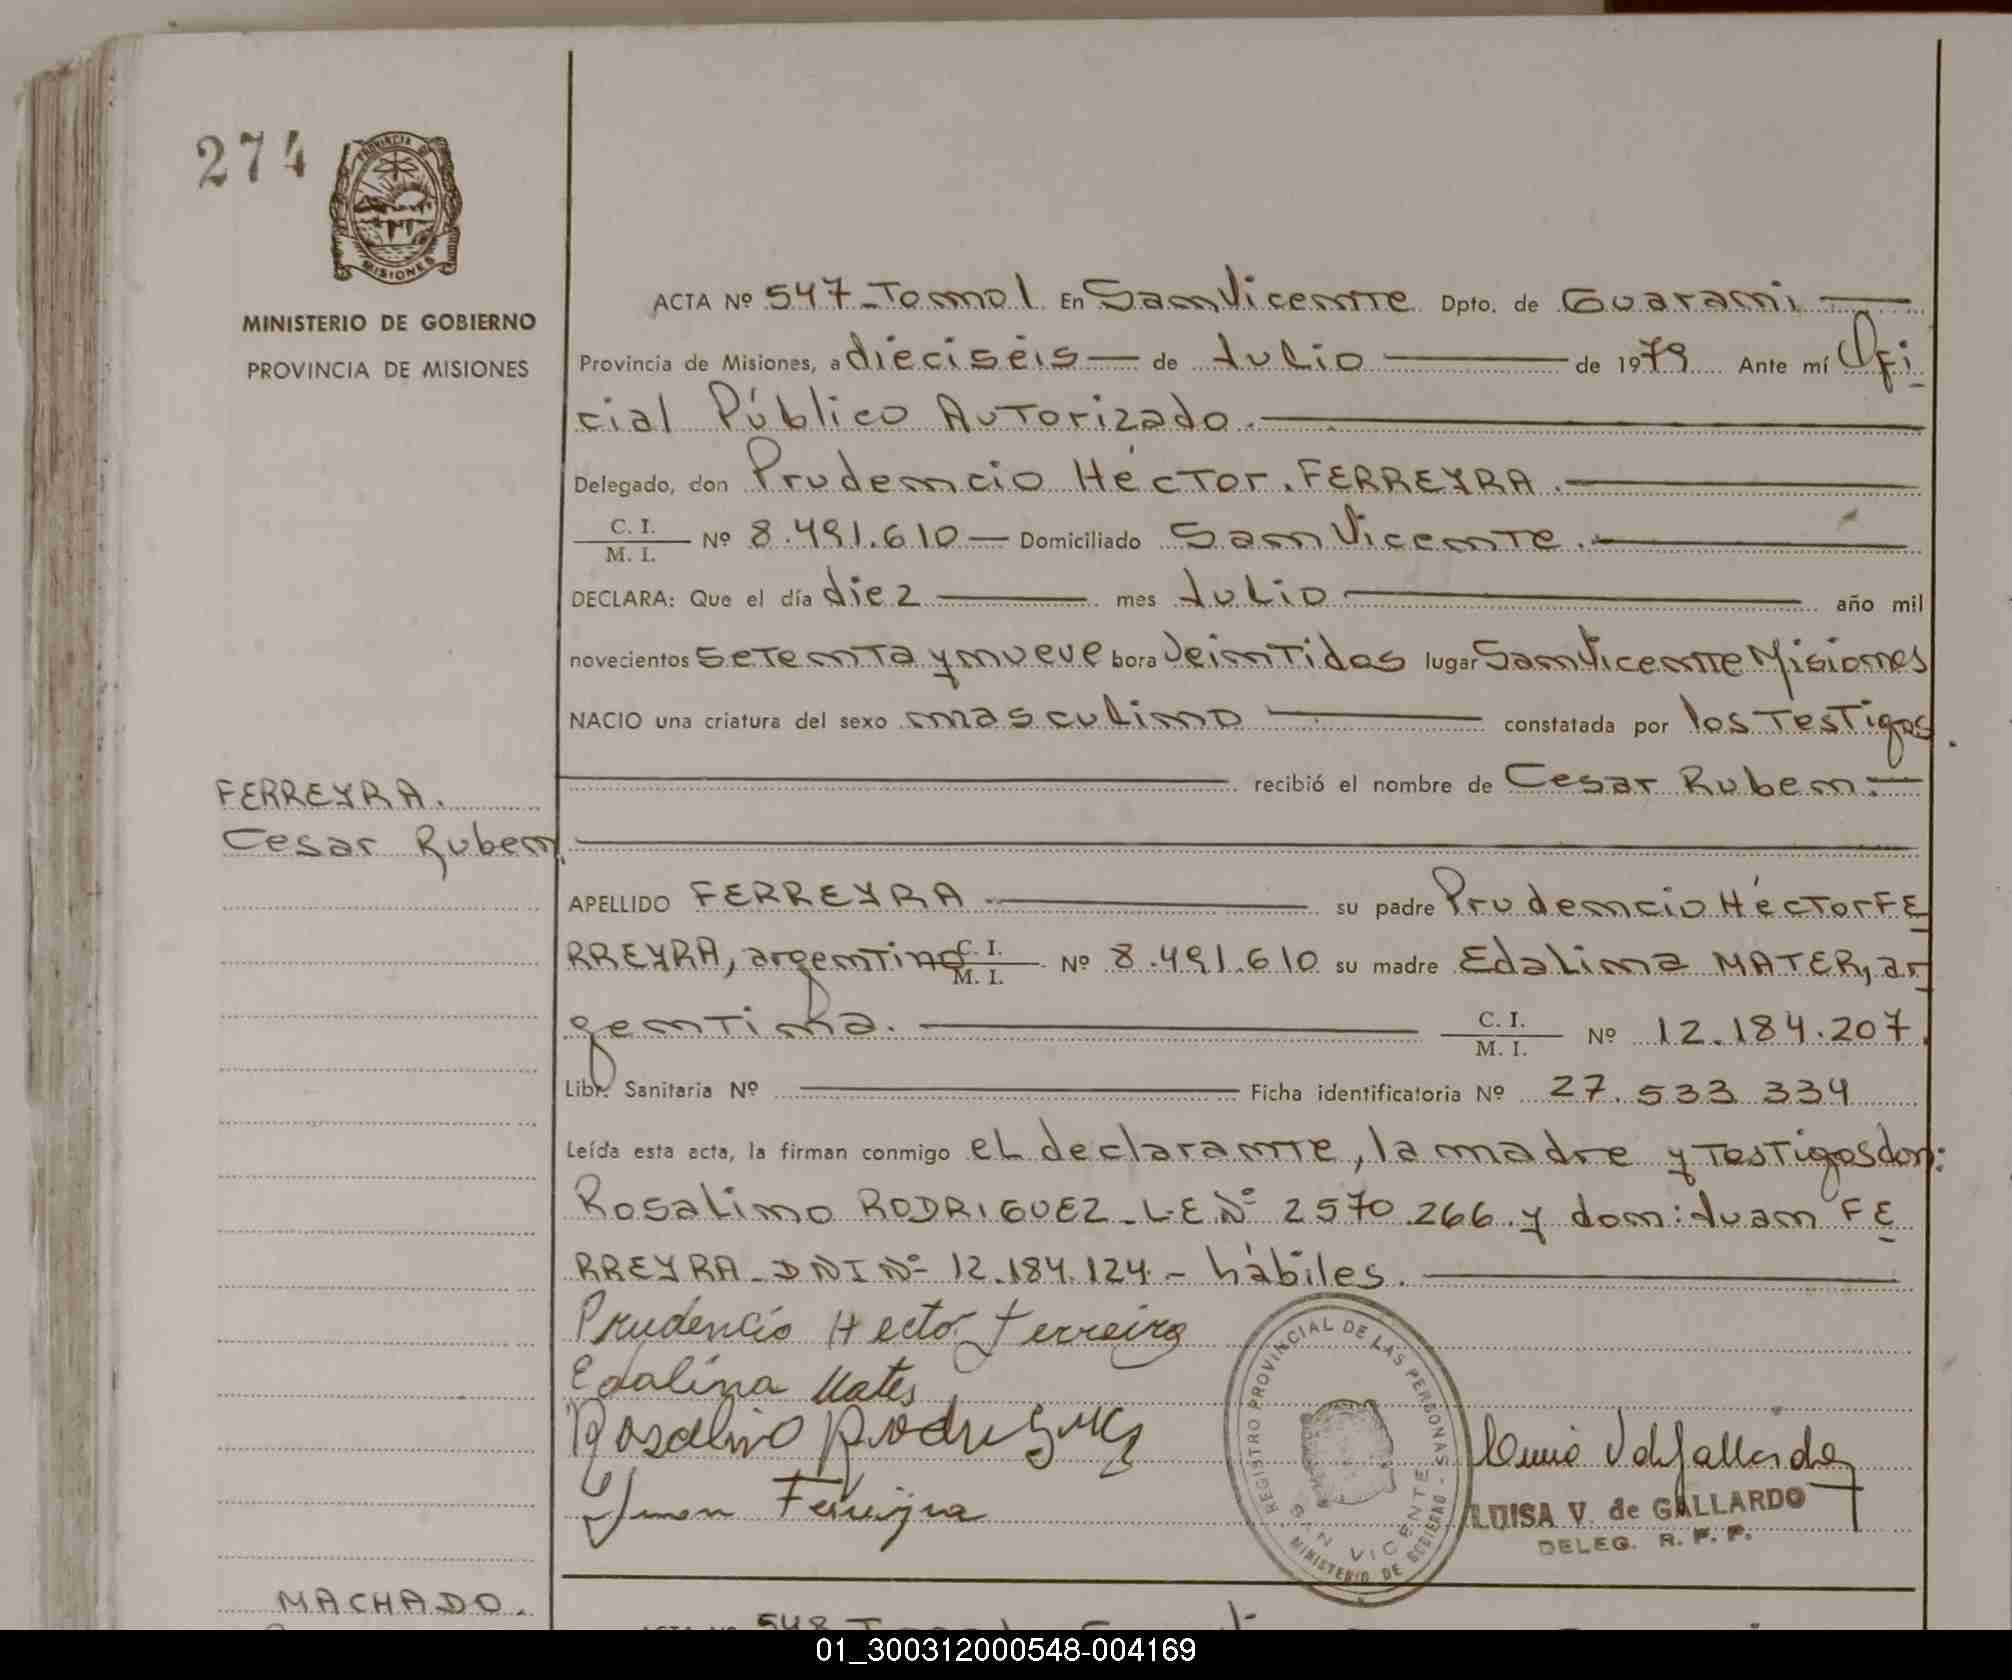 274
PROVINCIA DE
MISIONES
MINISTERIO DE GOBIERNO
PROVINCIA DE MISIONES
ACTA Nº 547-Tomo 1 En San Vicente Dpto. de Guarani
Provincia de Misiones, a dieciséis de Julio de 1979 Ante mí Ofi
cial Público Autorizado.
Delegado, don Prudencio Héctor. FERREYRA.
C. I.
M. I. Nº 8.491.610 Domiciliado San Vicente.
DECLARA: Que el día diez mes Julio año mil
novecientos setenta y nueve hora Veintidos lugar San Vicente Misiones
NACIO una criatura del sexo masculino constatada por los Testigos.
recibió el nombre de Cesar Ruben.
FERREYRA.
Cesar Ruben
APELLIDO FERREYRA su padre Prudencio Héctor FE
RREYRA, argentino C. I. M. I. Nº 8.491.610 su madre Edalina MATER, ar
gentina. C. I. M. I. Nº 12.184.207.
Libr. Sanitaria Nº Ficha identificatoria Nº 27.533 334
Leída esta acta, la firman conmigo el declarante, la madre y Testigos don:
Rosalino RODRIGUEZ - L.E.Nº 2570.266 y don: Juan FE
RREYRA - DNI Nº 12.184.124 - hábiles.
Prudencio Hector Ferreira
Edalina Mater
Rosalino Rodriguez
Juan Ferreyra
REGISTRO PROVINCIAL DE LAS PERSONAS - MINISTERIO DE GOBIERNO
SAN VICENTE
LUISA V. de GALLARDO
DELEG. R. P. P.
MACHADO.
548
01_300312000548-004169